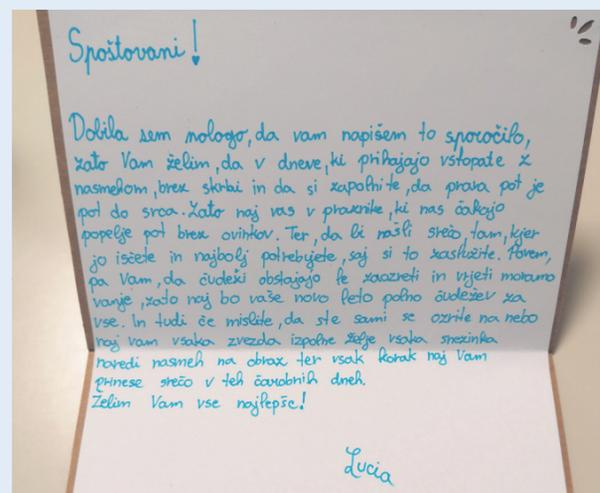 Spoštovani!
Dobila sem nalogo, da vam napišem to sporočilo,
zato Vam želim, da v dneve, ki prihajajo vstopate z
nasmehom, brez skrbi in da si zapolnite, da prava pot je
pot do srca. Zato naj vas v praznike, ki nas čakajo
popelje pot brez ovinkov. Ter, da bi našli srečo, tam, kjer
jo iščete in najbolj potrebujete, saj si to zaslužite. Povem,
pa Vam, da čudeži obstajajo le zaazreti in vrjeti moramo
vanje, zato naj bo vaše novo leto polno čudežev za
vse. In tudi če mislite, da ste sami se ozrite na nebo
naj vam vsaka zvezda izpolne želje vsaka snezinka
naredi nasmeh na obraz ter vsak korak naj Vam
prinese srečo v teh čarobnih dneh.
Želim Vam vse najlepše!
Lucia